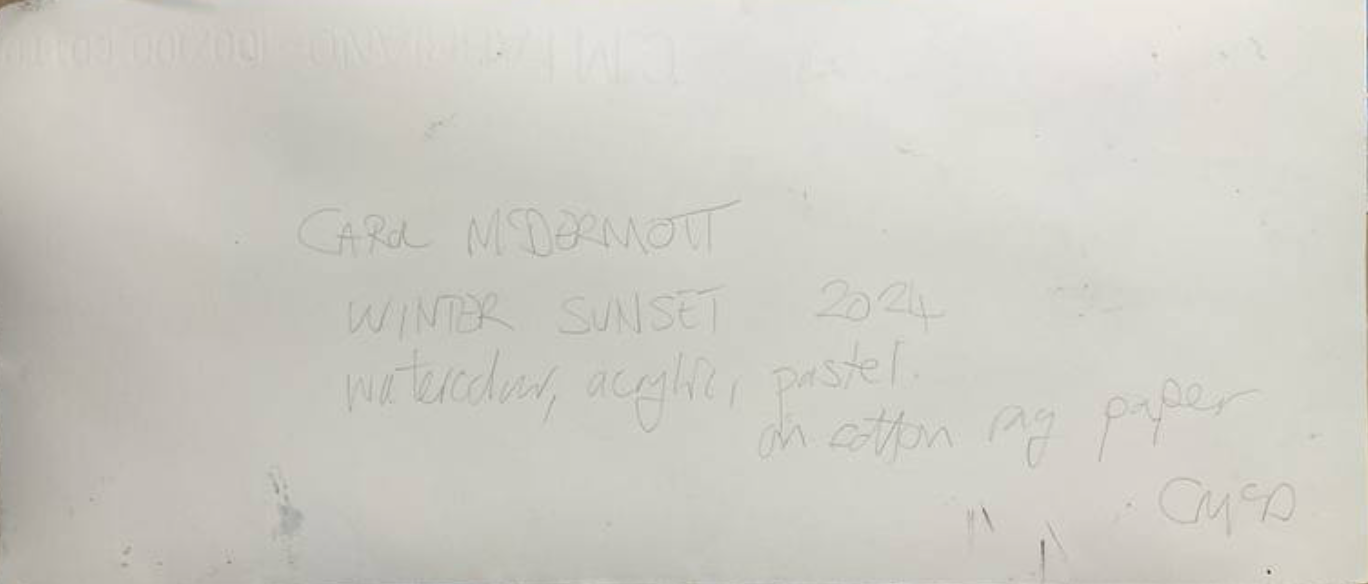 CAROL McDERMOTT
WINTER SUNSET 2024
watercolour, acrylic, pastel.
on cotton rag paper
CMcD